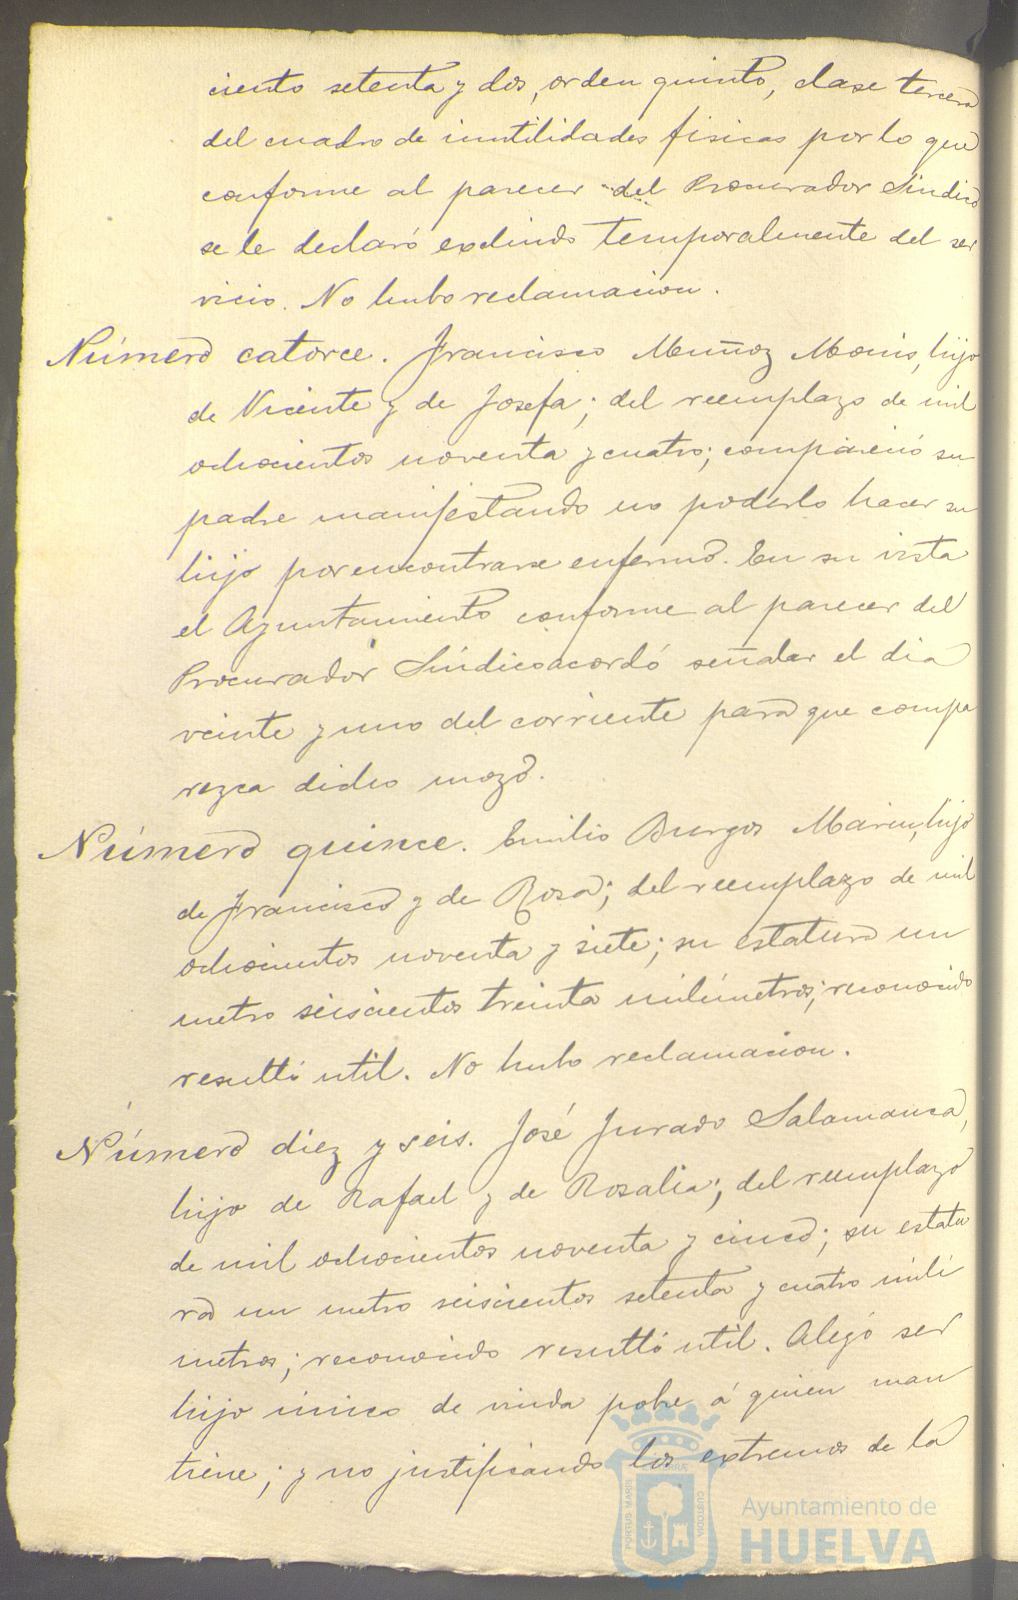 ciento setenta y dos, orden quinto, clase tercera
del cuadro de inutilidades fisicas por lo que
conforme al parecer del Procurador Sindico
se le declaró excluido temporalmente del ser
vicio. No hubo reclamacion.
Número catorce. Francisco Muñoz Monis, hijo
de Vicente y de Josefa; del reemplazo de mil
ochocientos noventa y cuatro; compareció su
padre manifestando no poderlo hacer su
hijo por encontrarse enfermo. En su vista
el Ayuntamiento conforme al parecer del
Procurador Síndico acordó señalar el dia
veinte y uno del corriente para que compa
rezca dicho mozo.
Número quince. Emilio Burgos Marin, hijo
de Francisco y de Rosa; del reemplazo de mil
ochocientos noventa y siete; su estatura un
metro seiscientos treinta milímetros; reconocido
resultó util. No hubo reclamacion.
Número diez y seis. José Jurado Salamanca,
hijo de Rafael y de Rosalia; del reemplazo
de mil ochocientos noventa y cinco; su estatu
ra un metro seiscientos setenta y cuatro milí
metros; reconocido resultó util. Alegó ser
hijo único de viuda pobre á quien man
tiene; y no justificando los extremos de la
PORTUS MARIS
CUSTODIA
Ayuntamiento de
HUELVA